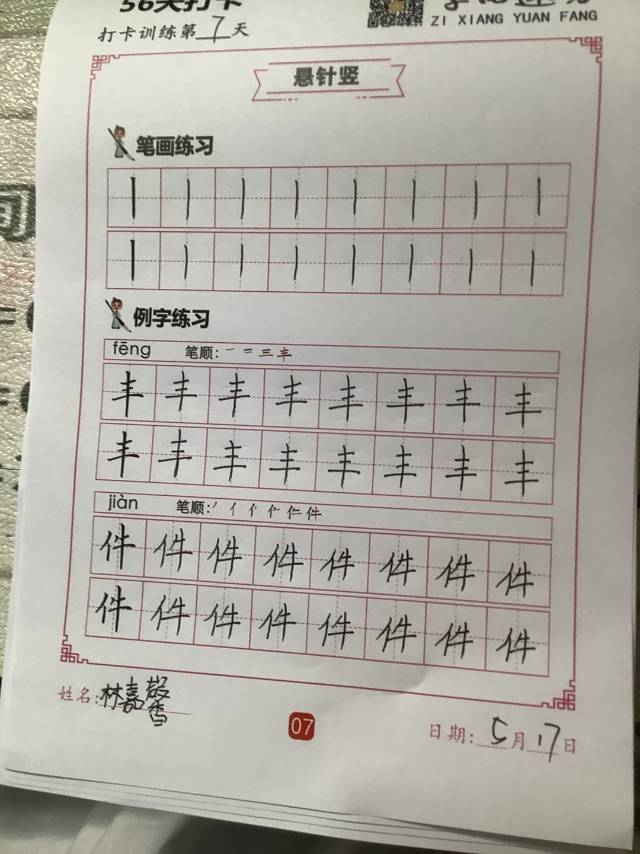 56天打卡
ZI XIANG YUAN FANG
打卡训练第7天
悬针竖
笔画练习
丨丨丨丨丨丨丨丨
丨丨丨丨丨丨丨丨
例字练习
fēng 笔顺:一二三丰
丰丰丰丰丰丰丰丰
丰丰丰丰丰丰丰丰
jiàn 笔顺:丿亻亻仁件
件件件件件件件件
件件件件件件件件
姓名:林嘉馨
07
日期:5月17日